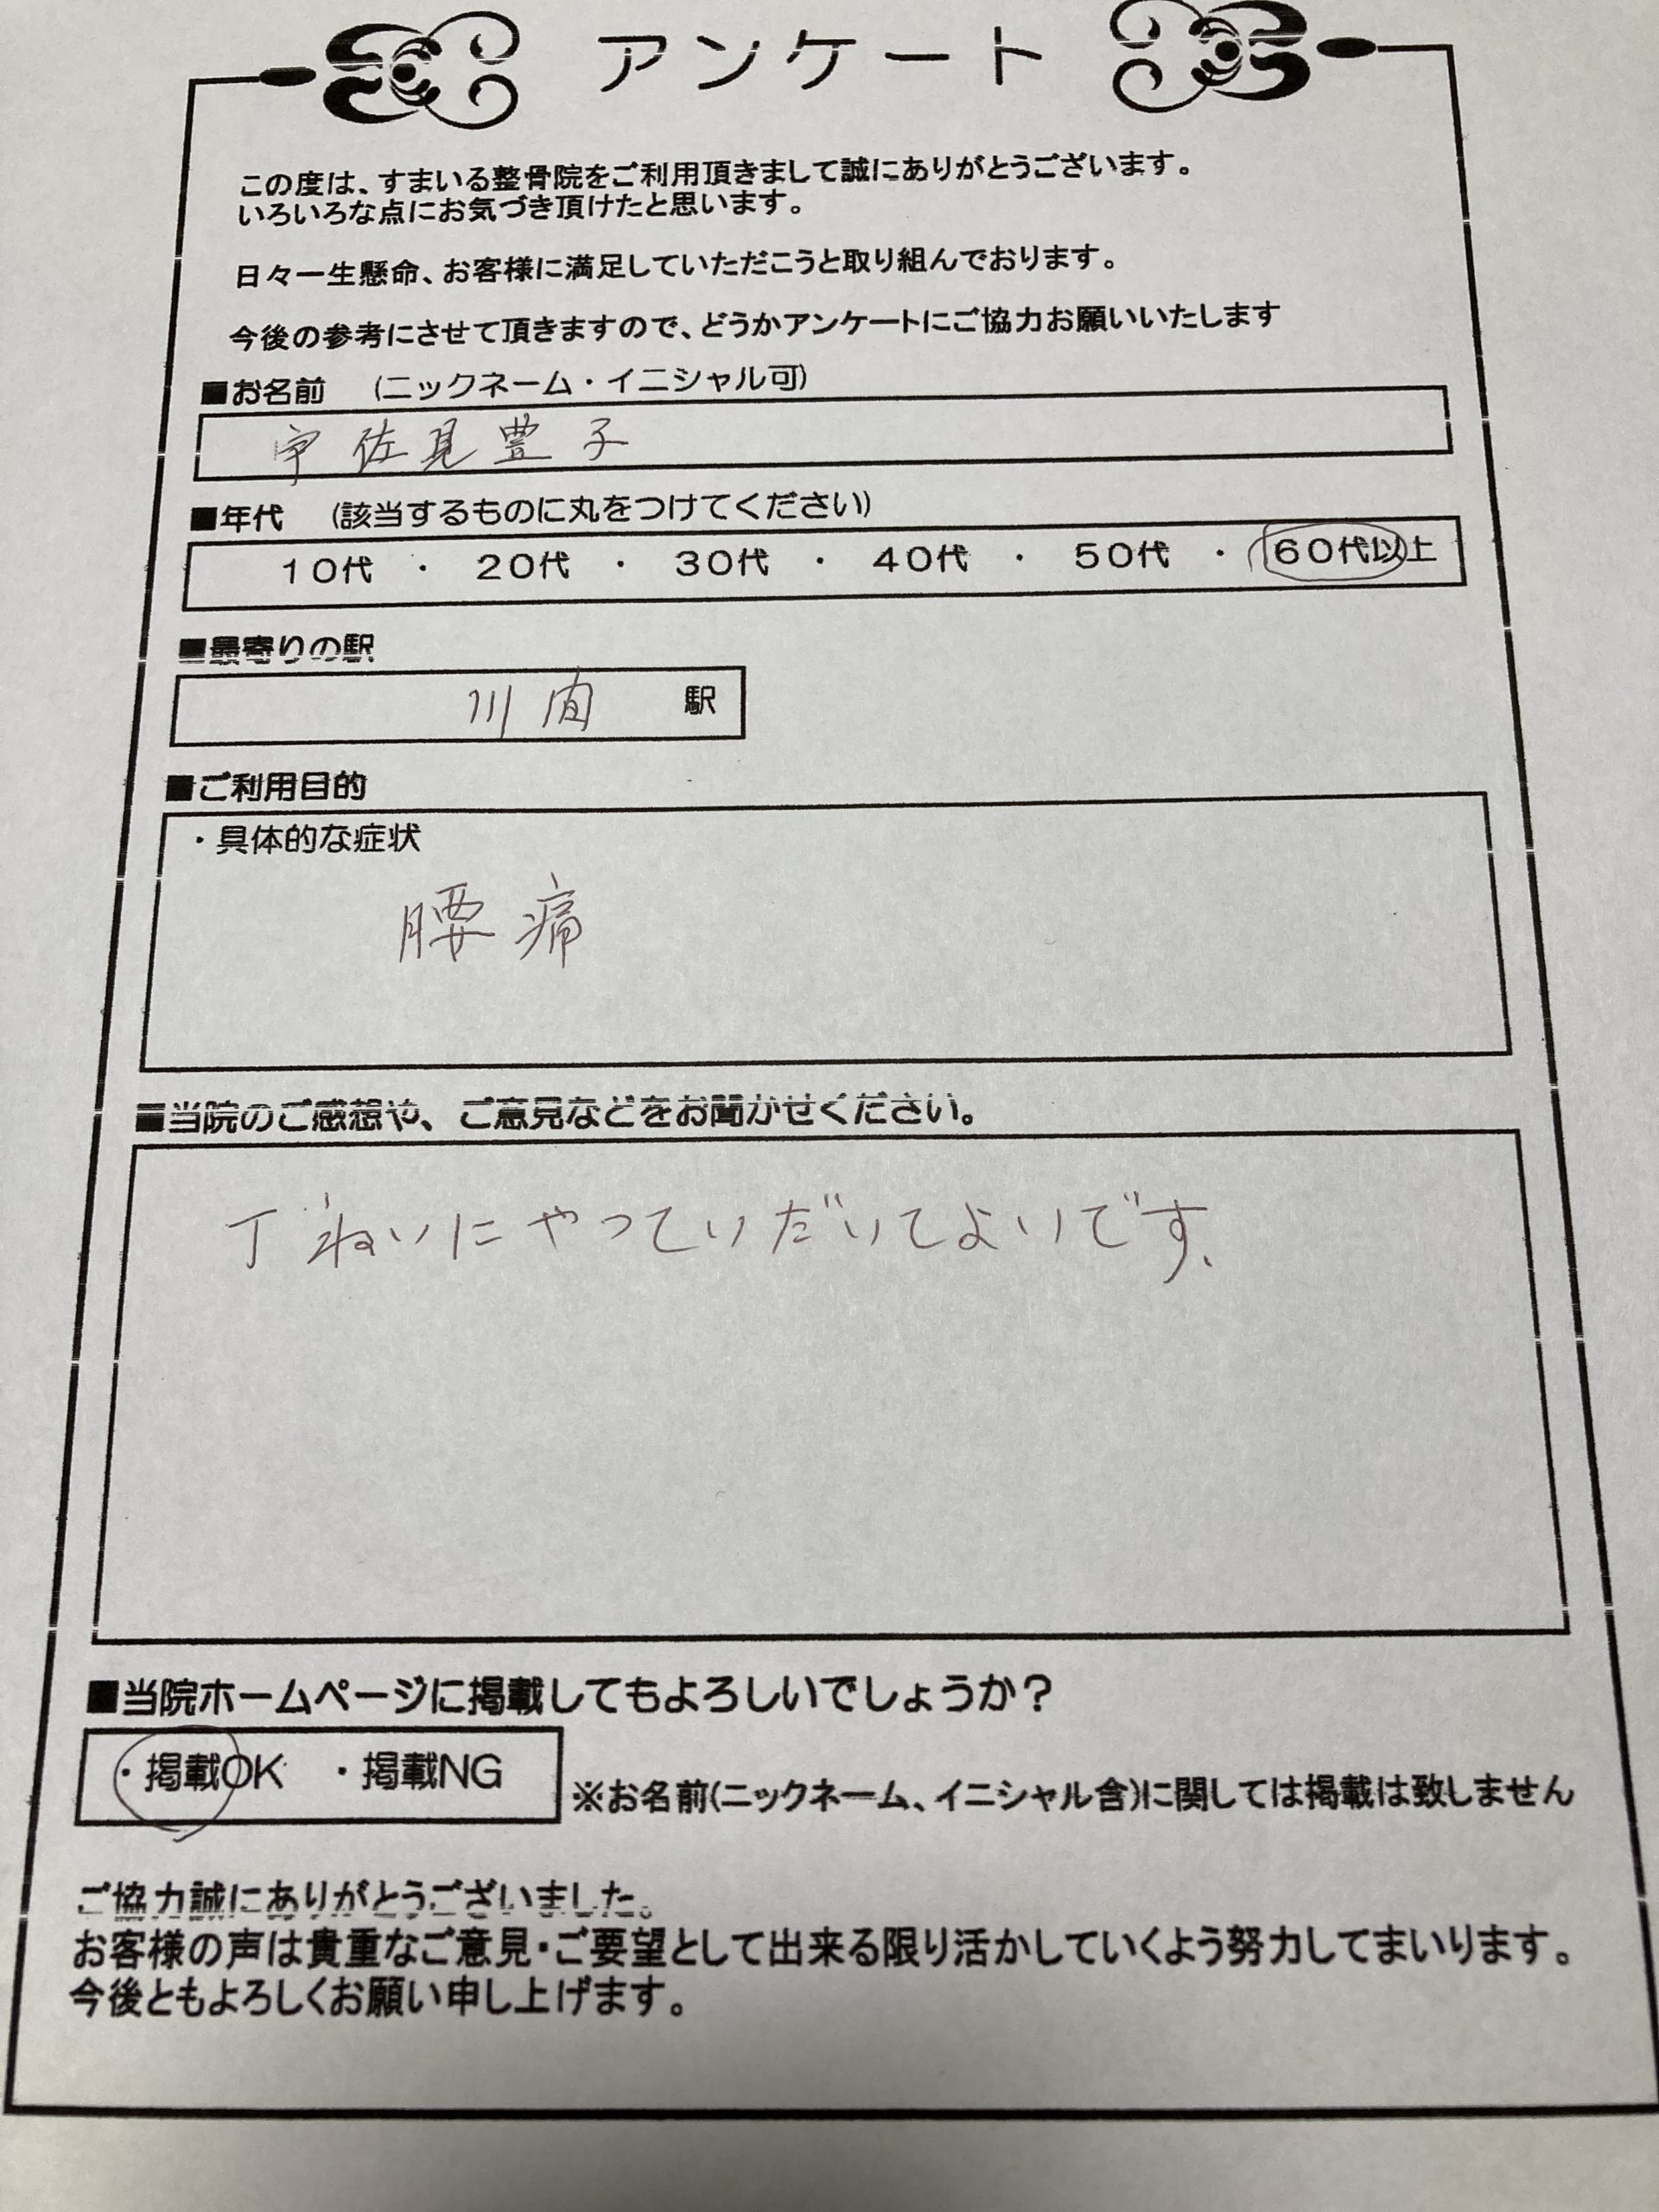 アンケート
この度は、すまいる整骨院をご利用頂きまして誠にありがとうございます。
いろいろな点にお気づき頂けたと思います。
日々一生懸命、お客様に満足していただこうと取り組んでおります。
今後の参考にさせて頂きますので、どうかアンケートにご協力お願いいたします
■お名前 (ニックネーム・イニシャル可)
宇佐見豊子
■年代 (該当するものに丸をつけてください)
10代 ・ 20代 ・ 30代 ・ 40代 ・ 50代 ・ 60代以上
■最寄りの駅
川間 駅
■ご利用目的
・具体的な症状
腰痛
■当院のご感想や、ご意見などをお聞かせください。
丁ねいにやっていだいてよいです、
■当院ホームページに掲載してもよろしいでしょうか？
・掲載OK ・掲載NG
※お名前(ニックネーム、イニシャル含)に関しては掲載は致しません
ご協力誠にありがとうございました。
お客様の声は貴重なご意見・ご要望として出来る限り活かしていくよう努力してまいります。
今後ともよろしくお願い申し上げます。